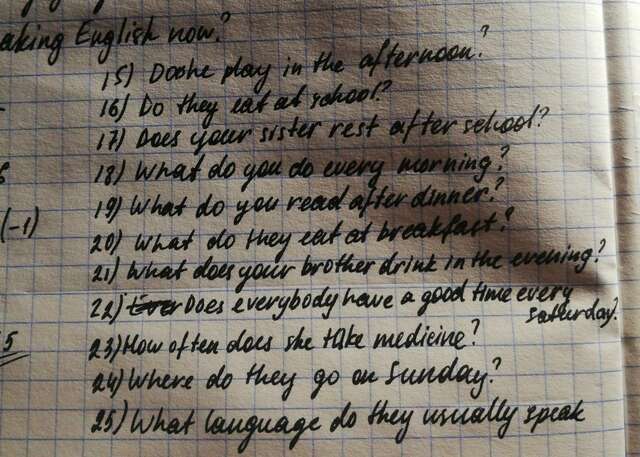 aking English now?
15) Doshe play in the afternoon?
16) Do they eat at school?
17) Does your sister rest after school?
18) What do you do every morning?
19) What do you read after dinner?
(-1)
20) What do they eat at breakfast?
21) What does your brother drink in the evening?
22) Does everybody have a good time every
Satterday?
5
23) How often does she take medicine?
24) Where do they go on Sunday?
25) What language do they usually speak